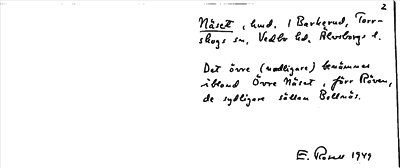 2
Näset, hmd. i Barkerud, Torr-
skogs sn, Vedbo hd. Älvsborgs l.
Det övre (nordligare) benämnes
ibland Övre Näset, förr Röven,
de sydligare sällan Bollnäs.
E. Rosell 1949